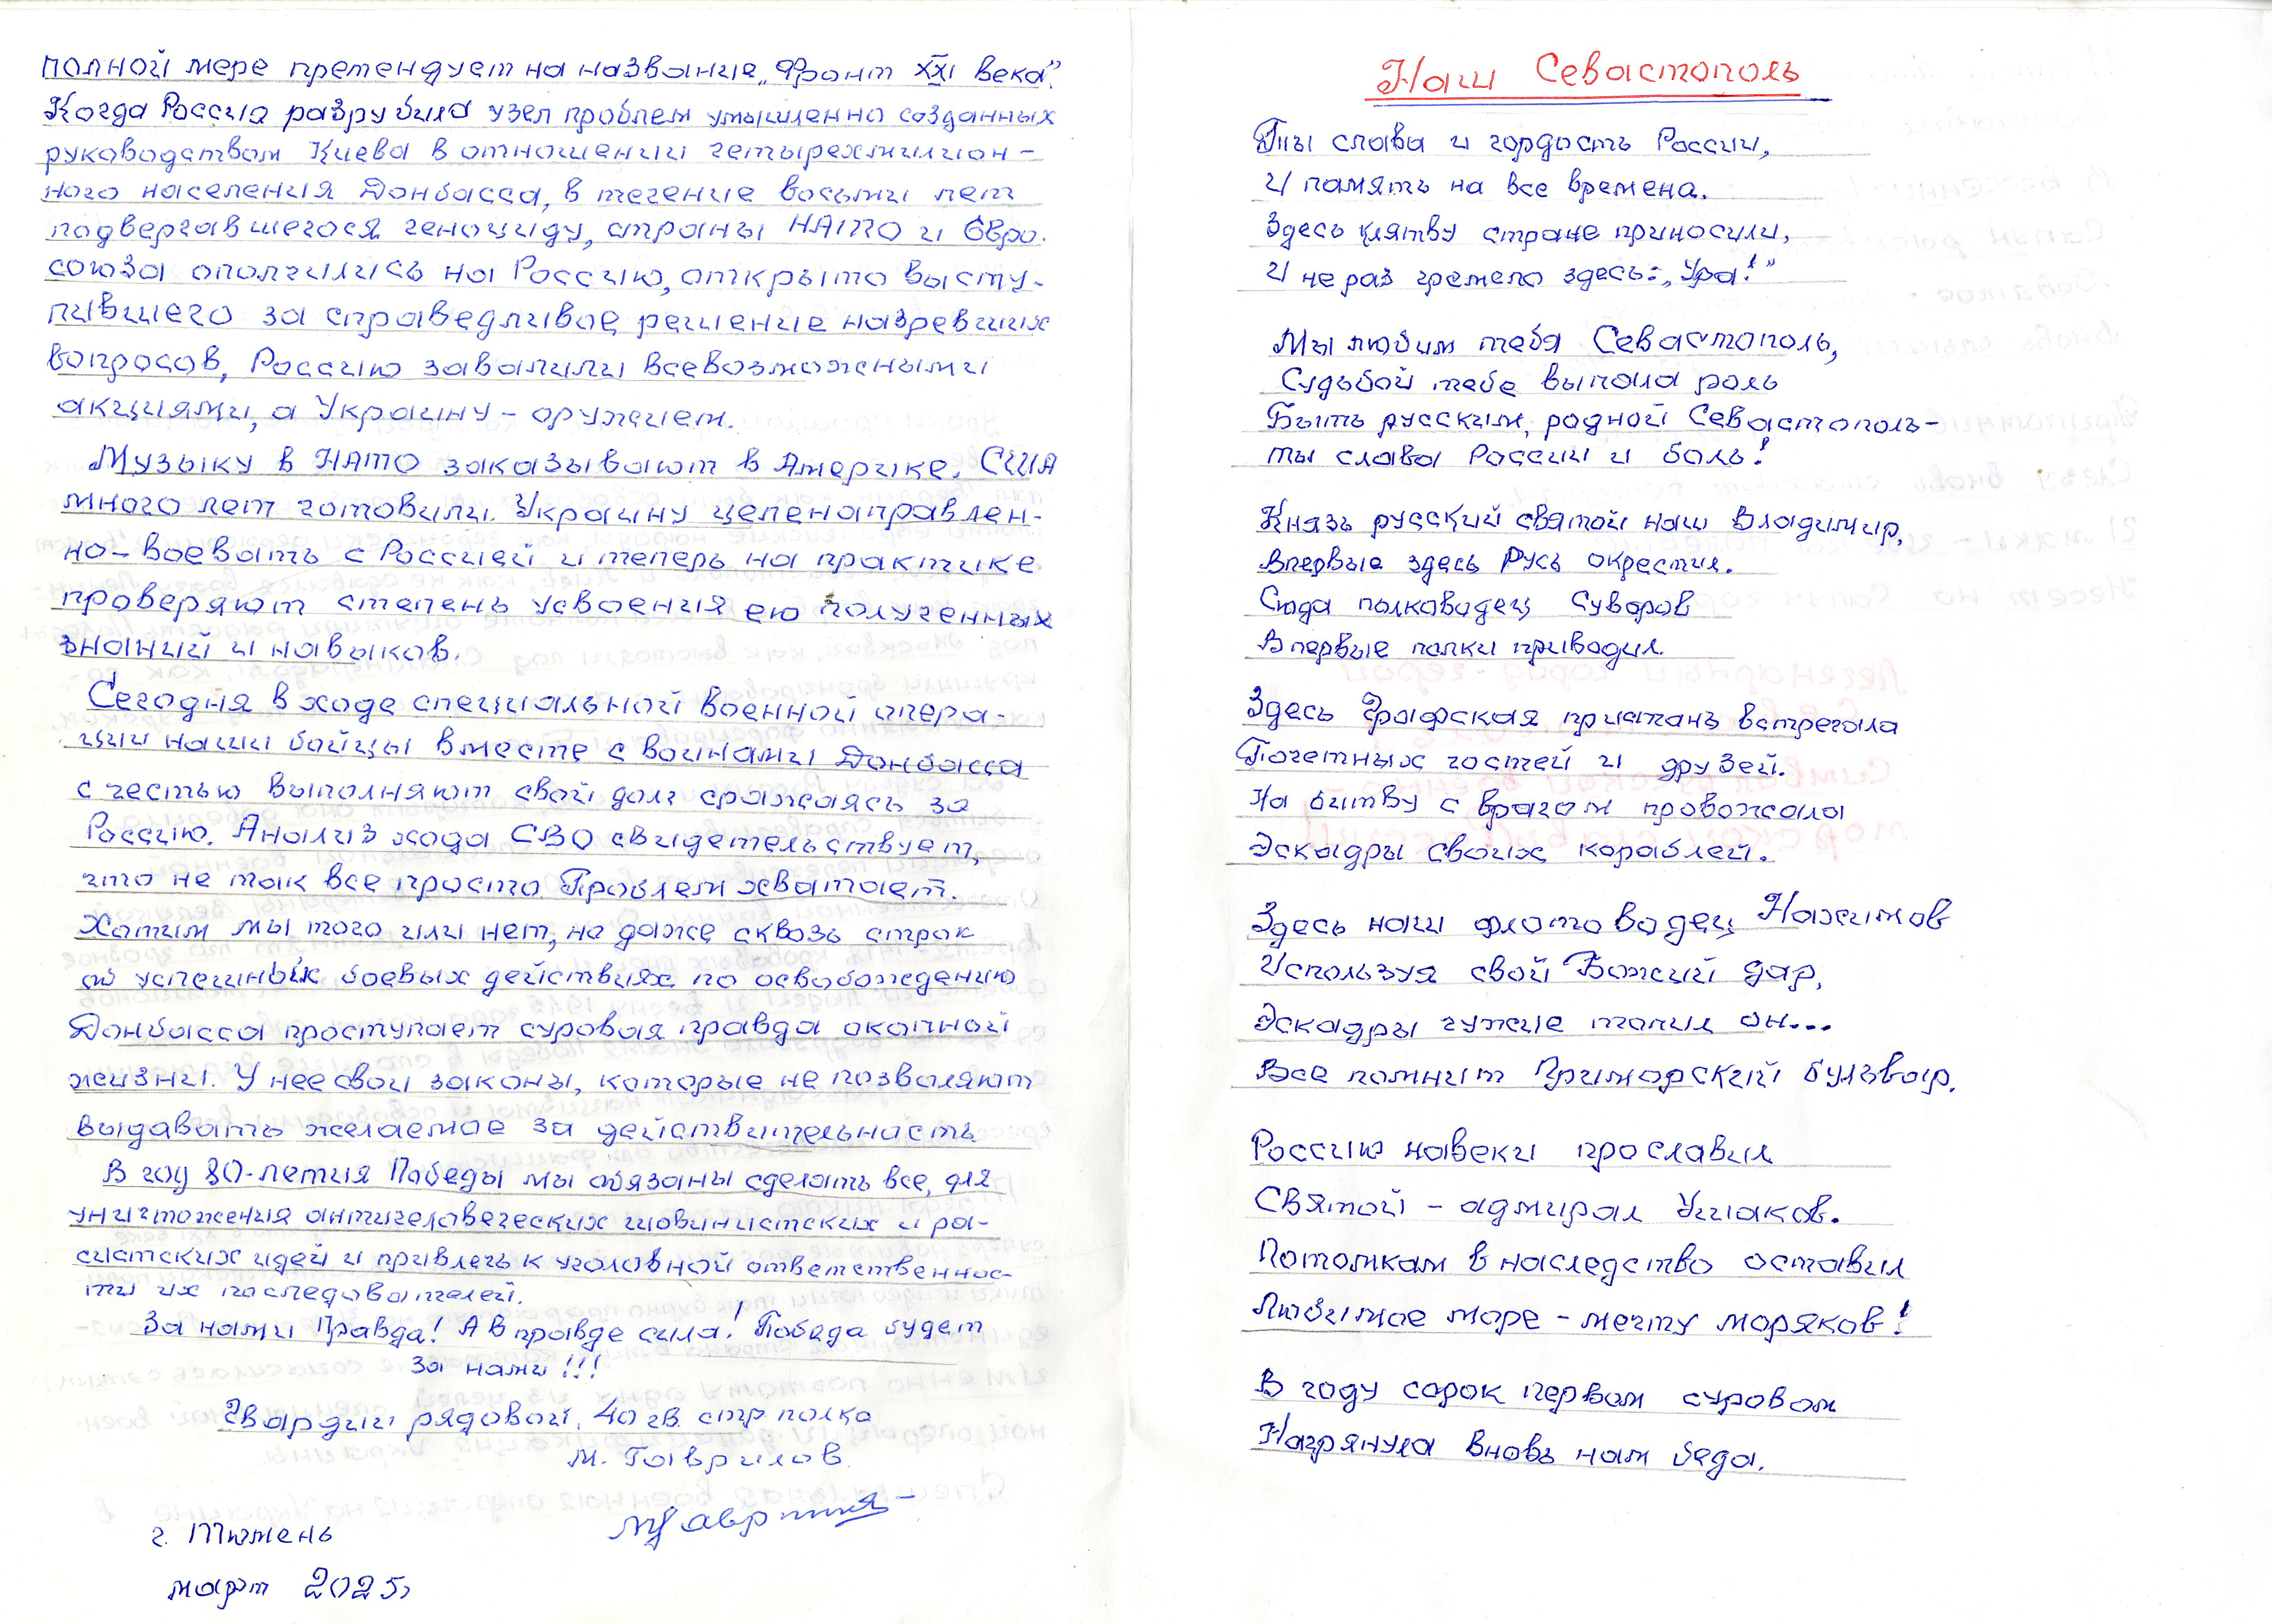 полной мере претендует на название „Фронт XXI века".
Когда Россия разрубила узел проблем умышленно созданных
руководством Киева в отношении четырехмиллион-
ного населения Донбасса, в течение восьми лет
подвергавшегося геноциду, страны НАТО и Евро-
союза ополчились на Россию, открыто высту-
пившего за справедливое решение назревших
вопросов, Россию завалили всевозможными
акциями, а Украину - оружием.
Музыку в НАТО заказывают в Америке. США
много лет готовили Украину целенаправлен-
но - воевать с Россией и теперь на практике
проверяют степень усвоения ею полученных
знаний и навыков.
Сегодня в ходе специальной военной опера-
ции наши бойцы вместе с воинами Донбасса
с честью выполняют свой долг сражаясь за
Россию. Анализ хода СВО свидетельствует,
что не так все просто. Проблем хватает.
Хотим мы того или нет, но даже сквозь строк
об успешных боевых действиях по освобождению
Донбасса проступает суровая правда окопной
жизни. У нее свои законы, которые не позволяют
выдавать желаемое за действительность.
В год 80-летия Победы мы обязаны сделать все, для
уничтожения античеловеческих шовинистских и ра-
систских идей и привлечь к уголовной ответственнос-
ти их последователей.
За нами Правда! А в правде сила! Победа будет
за нами!!!
Гвардии рядовой. 40 гв. стр полка
М. Гаврилов.
г. Тюмень
март 2025г
Наш Севастополь
Ты слава и гордость России,
И память на все времена.
Здесь клятву стране приносили,
И не раз гремело здесь: „Ура!"
Мы любим тебя Севастополь,
Судьбой тебе выпала роль
Быть русским, родной Севастополь -
ты слава России и боль!
Князь русский святой наш Владимир,
Впервые здесь Русь окрестил.
Сюда полководец Суворов
Впервые полки приводил.
Здесь Графская пристань встречала
Почетных гостей и друзей.
На битву с врагом провожала
Эскадры своих кораблей.
Здесь наш флотоводец Нахимов
Используя свой Божий дар,
Эскадры чужие топил он...
Все помнит Приморский бульвар.
Россию навеки прославил
Святой - адмирал Ушаков.
Потомкам в наследство оставил
Любимое море - мечту моряков!
В году сорок первом суровом
Нагрянула вновь нам беда.